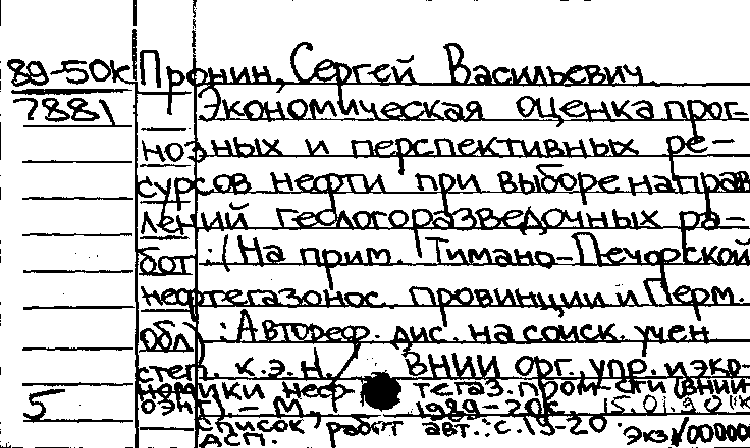 89-50к Пронин, Сергей Васильевич.
7881 Экономическая оценка прог-
нозных и перспективных ре-
сурсов нефти при выборе направ
лений геологоразведочных ра-
бот :(На прим. Тимано-Печорской
нефтегазонос. провинции и Перм.
обл) : Автореф. дис. на соиск. учен
степ. к.э.н. / ВНИИ орг., упр. и эко-
номики неф- тегаз. пром-сти (ВНИИ
5 ОЭНГ). - М., 1989 - 20с. 15.01.90
Список работ авт.: с. 19-20.
ДСП. Экз/00000